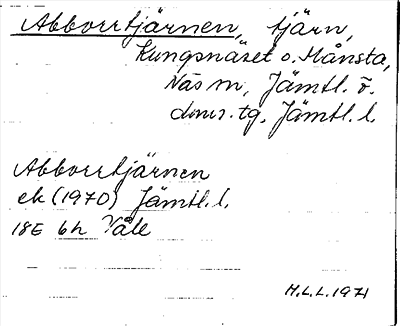 Abborrtjärnen, tjärn,
Kungsnäset o. Månsta,
Näs sn, Jämtl. ö.
dms. tg, Jämtl. l.
Abborrtjärnen
ek (1970) Jämtl. l.
18E 6h Våle
H.L.L. 1971